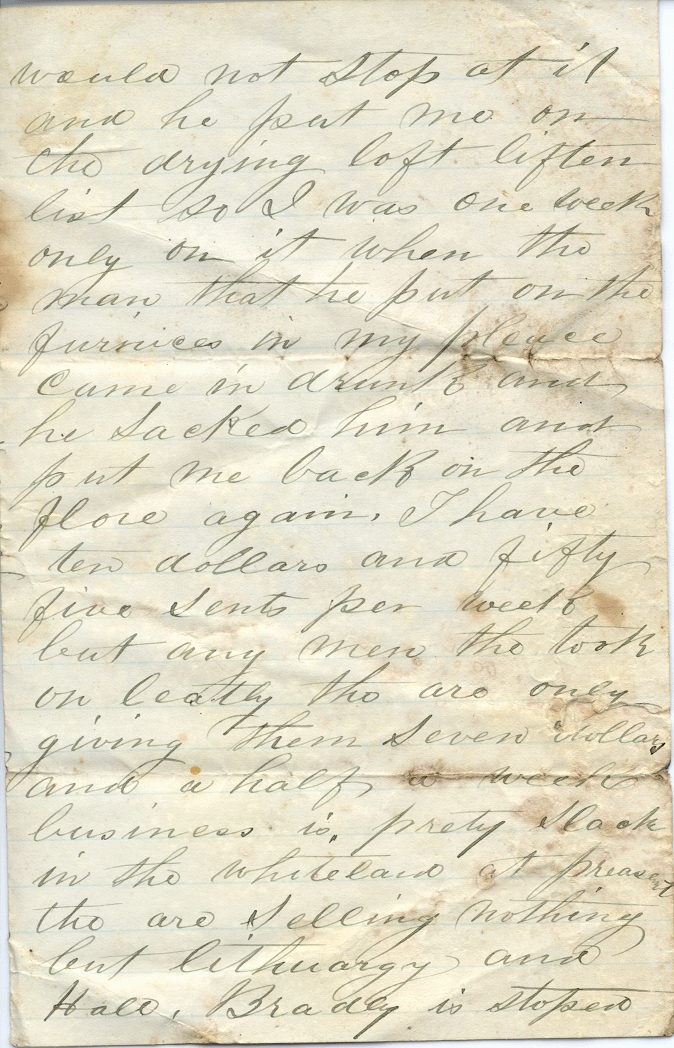 would not stop at it
and he put me on
the drying loft liften
list so I was one week
only on it when the
man that he put on the
furnices in my pleace
came in drunk and
he sacked him and
put me back on the
flore again. I have
ten dollars and fifty
five sents per week
but any men the took
on leatly the are only
giving them seven dollars
and a half a week
business is prety slack
in the whitelead at preasent
the are selling nothing
but lithuargy and
Hall, Bradly is stopen